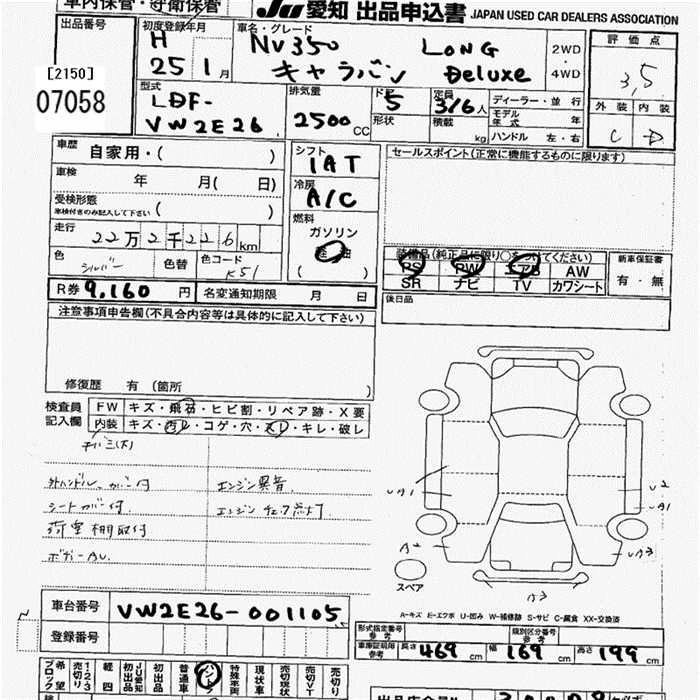 車内保管・守衛保管
JU 愛知 出品申込書 JAPAN USED CAR DEALERS ASSOCIATION
出品番号
[2150]
07058
初度登録年月
H 25年 1月
車名・グレード
NV350 LONG
キャラバン Deluxe
2WD
・
4WD
評価点
3.5
外装 内装
C D
型式
LDF-
VW2E26
排気量
2500CC
ドア
5
形状
定員
3/6人
積載 kg
ディーラー・並行
モデル年式 年
ハンドル 左・右
車歴
自家用・( )
車検 年 月( 日)
受検形態
車検付きのみ記入して下さい ( )
走行
22万2千226km
色 シルバー 色替 色コード K51
シフト
IAT
冷房
A/C
燃料
ガソリン
軽油
( )
セールスポイント(正常に機能するものに限ります)
装備品(純正品に限り○をつけてください)
PS PW エアB AW
SR ナビ TV カワシート
新車保証書
有・無
後日品
R券 9,160円 名変通知期限 月 日
注意事項申告欄(不具合内容等は具体的に記入して下さい)
修復歴 有 (箇所 )
検査員
記入欄
FW キズ・飛石・ヒビ割・リペア跡・X要
内装 キズ・汚レ・コゲ・穴・スレ・キレ・破レ
外ハンドルカバー付 エンジン異音
シートカバー付 エンジンチェック点灯
荷室棚取付
ボデーAU
UA1 U2
UA1
A2 UA3
A3
スペア
A-キズ E-エクボ U-凹み W-補修跡 S-サビ C-腐食 XX-交換済
車台番号 VW2E26-001105
登録番号
型式指定番号
参考
類別区分番号
参考
車庫証明用
参考 長さ 469cm 幅 169cm 高さ 199cm
希望ブロック 1・2・3 軽四 初出品 JU愛知初出品 普通車 バン 特殊車両 現状車 売切現状 売切VT 売切り
出品店会員